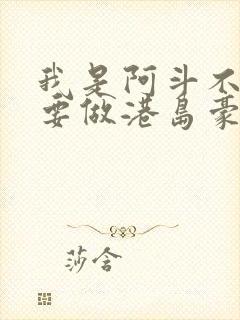 我是阿斗不
要做港岛豪
莎含